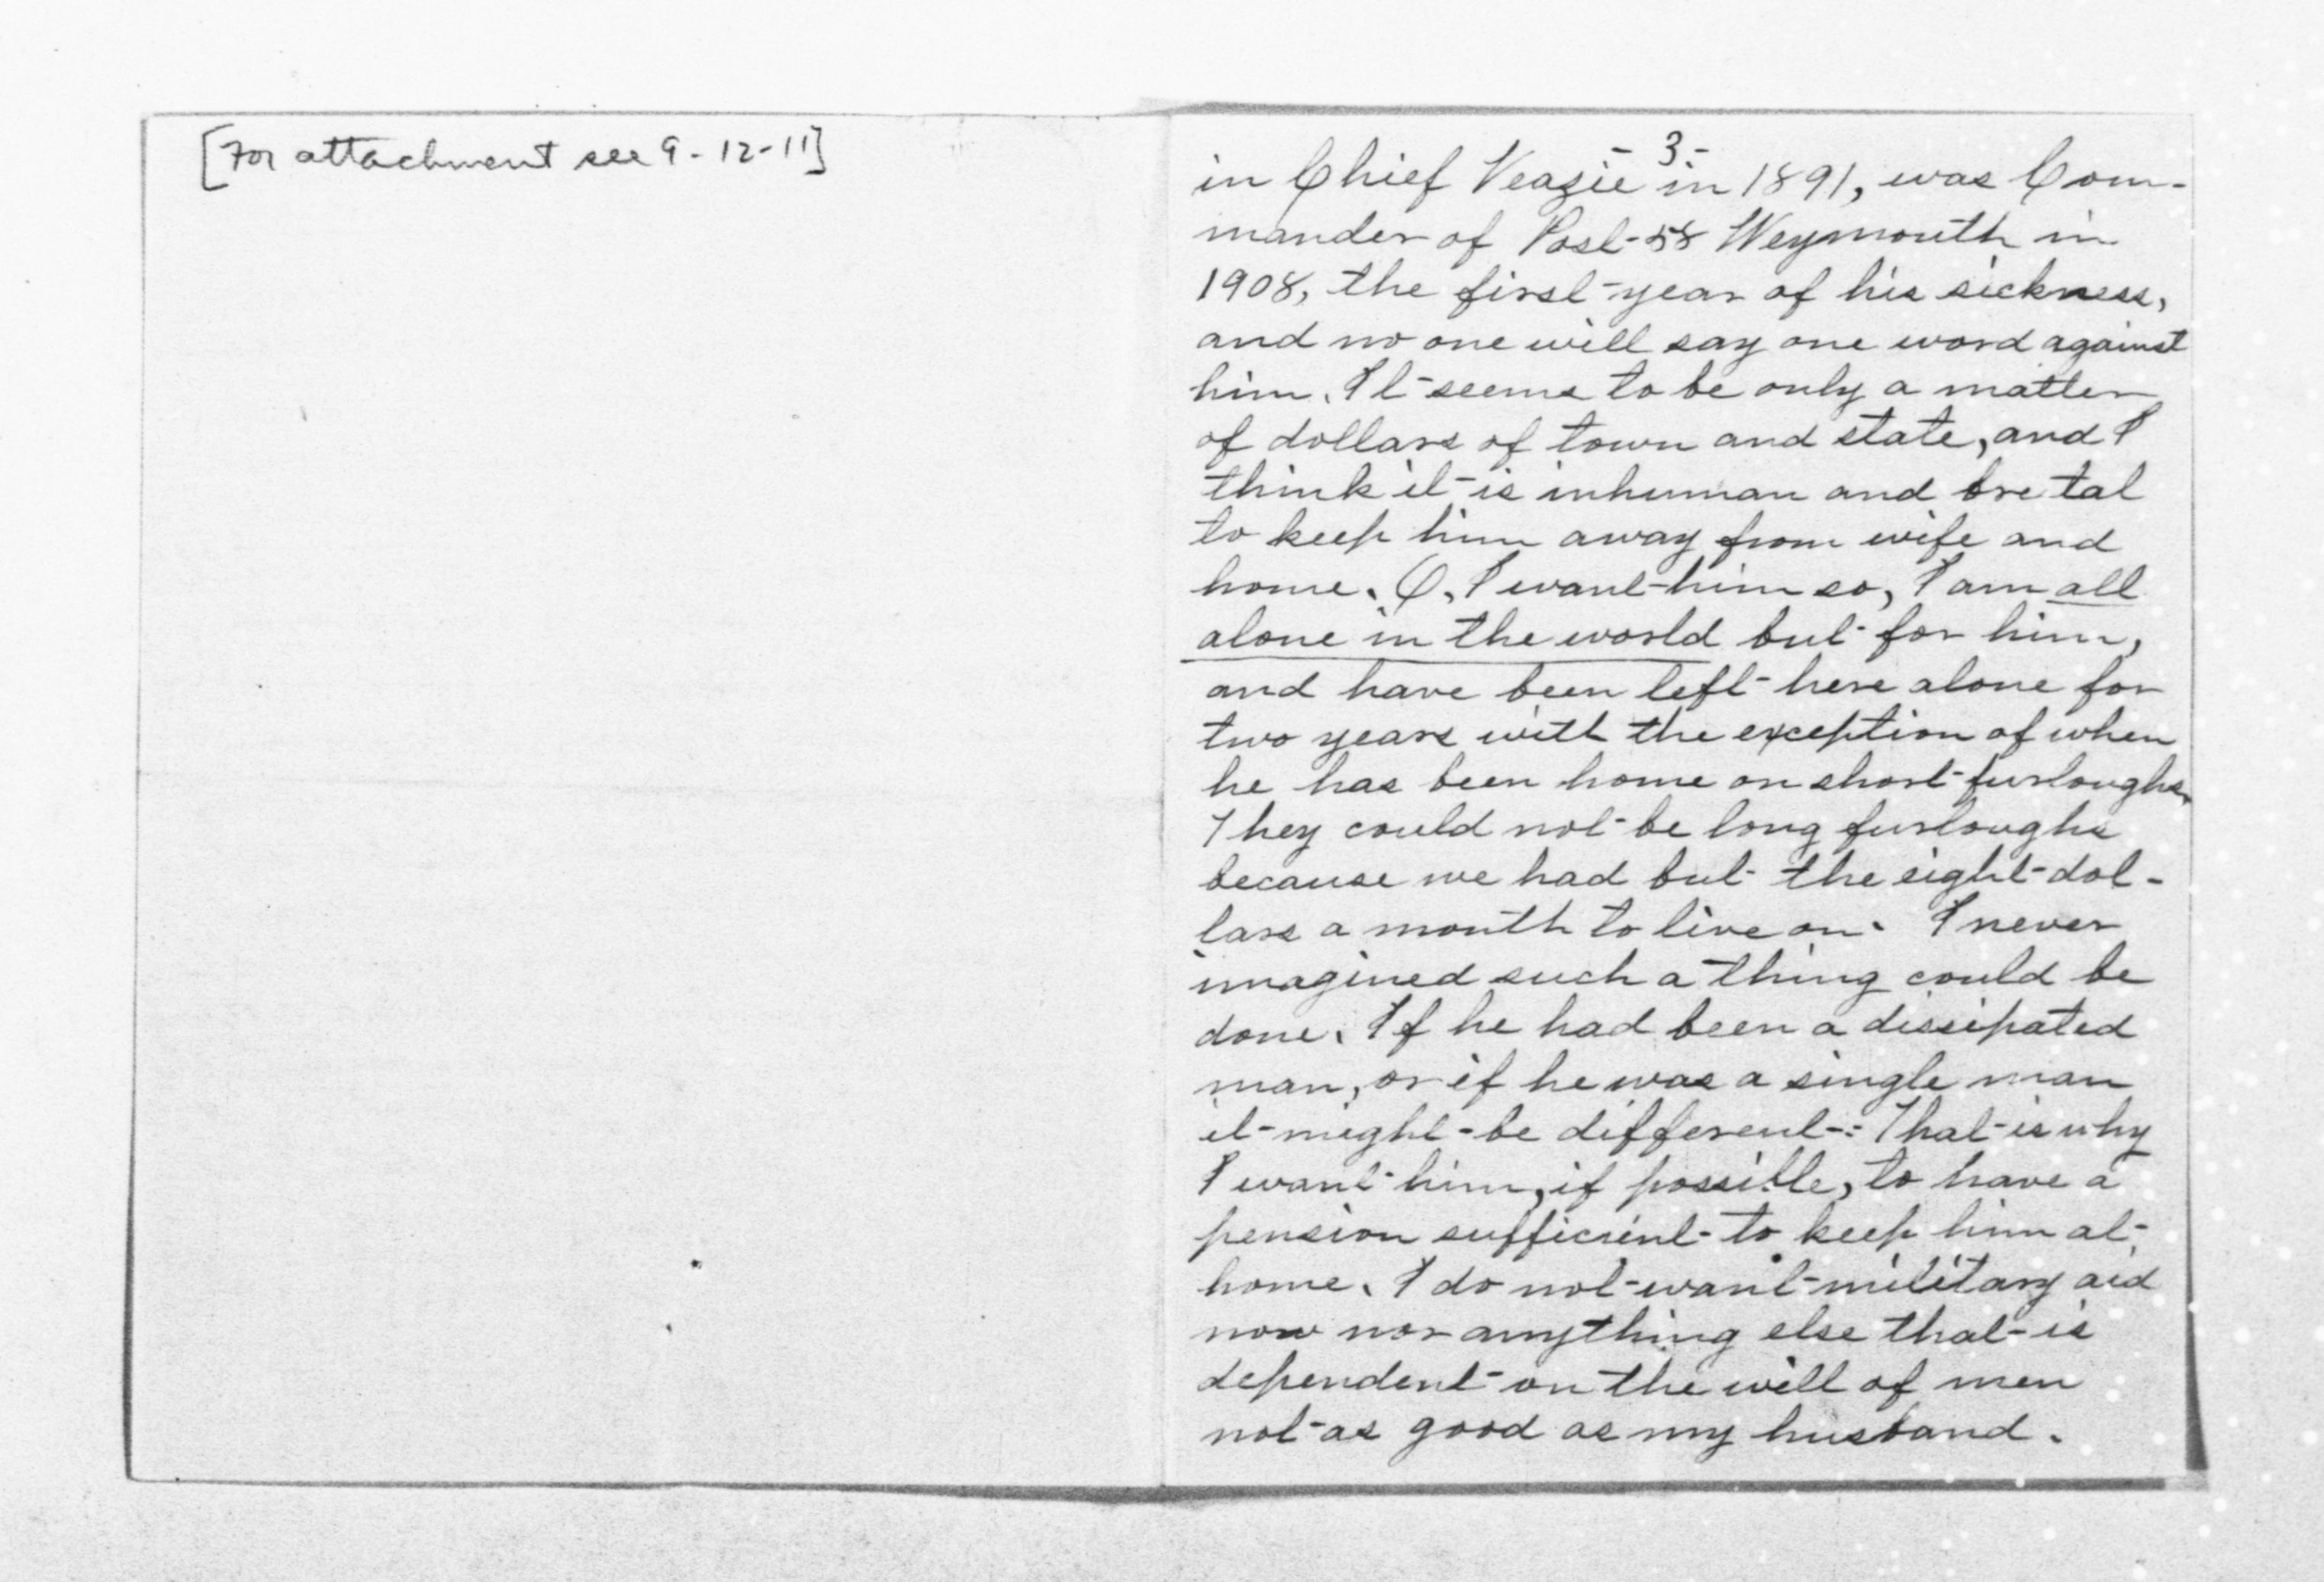 [For attachment see 9-12-11]
-3-
in Chief Veazie in 1891, was Com-
mander of Post 58 Weymouth in
1908, the first year of his sickness,
and no one will say one word against
him. It seems to be only a matter
of dollars of town and state, and I
think it is inhuman and brutal
to keep him away from wife and
home. O, I want him so, I am all
alone in the world but for him,
and have been left here alone for
two years with the exception of when
he has been home on short furloughs.
They could not be long furloughs
because we had but the eight dol-
lars a month to live on. I never
imagined such a thing could be
done. If he had been a dissipated
man, or if he was a single man
it might be different. That is why
I want him, if possible, to have a
pension sufficient to keep him at
home. I do not want military aid
now nor anything else that is
dependent on the will of men
not as good as my husband.